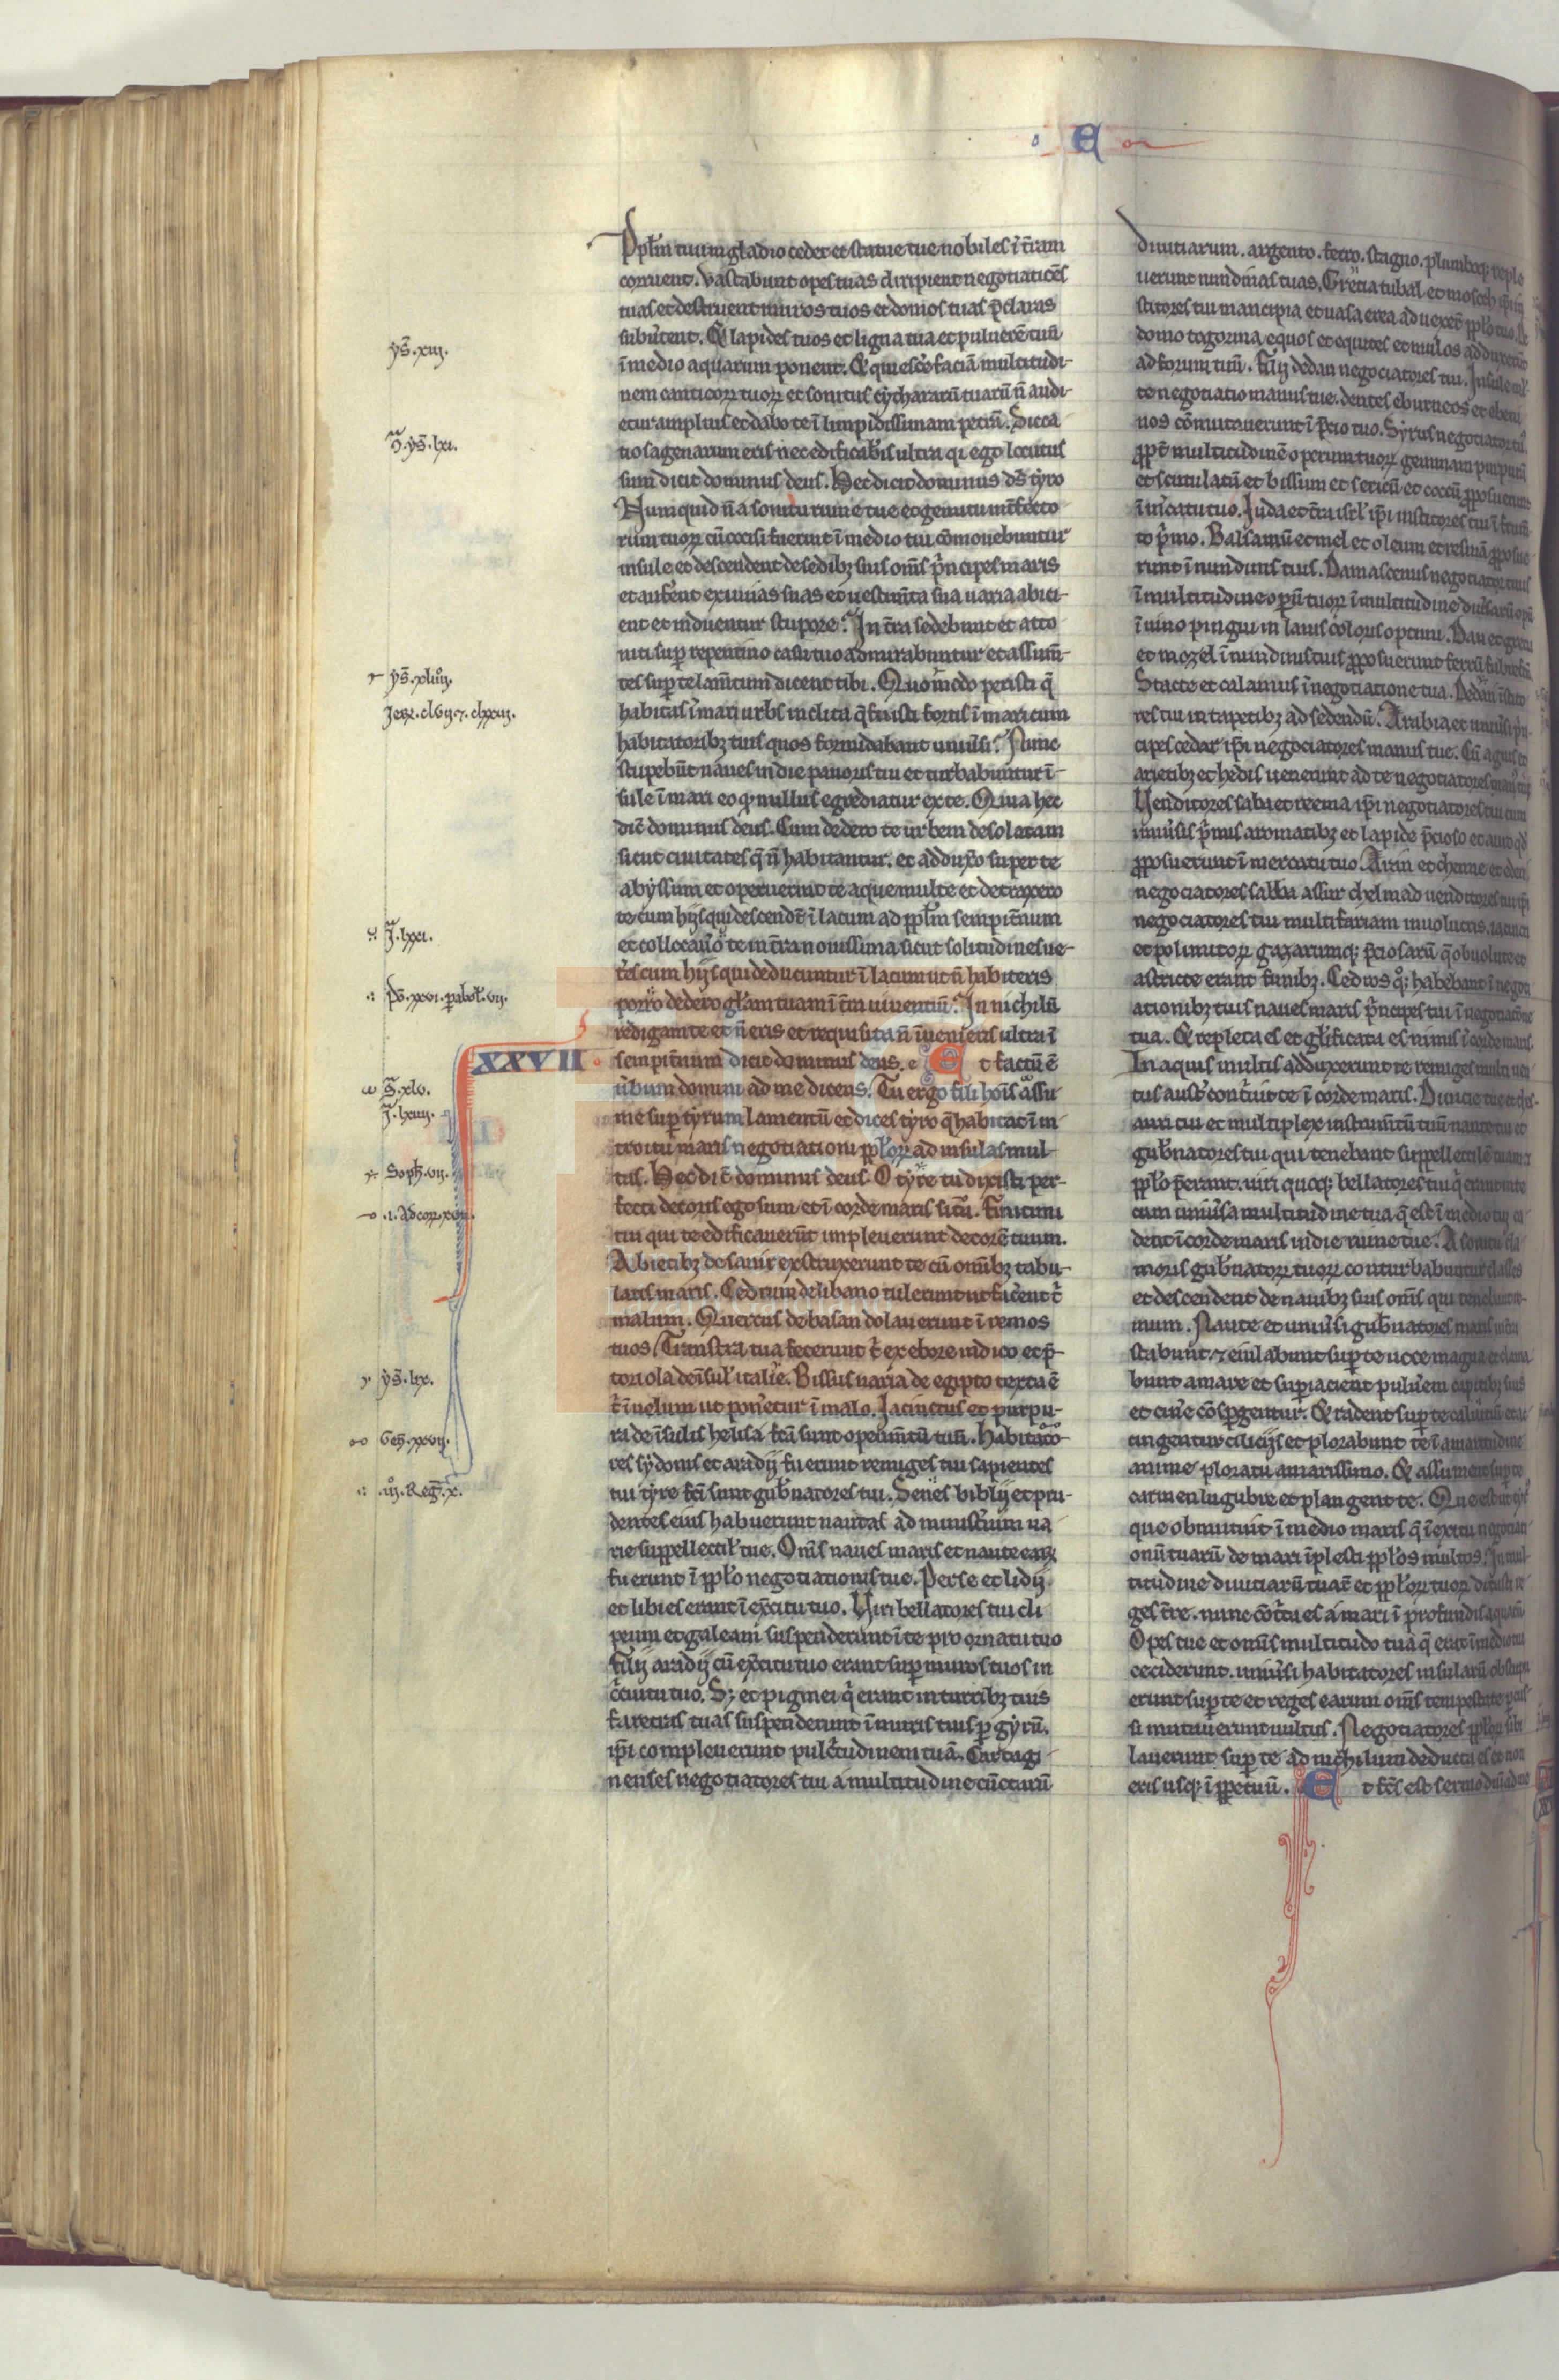 E
Pplm tuum gladio cedet et statue tue nobiles ī t̄ram
corruent. vastabunt opes tuas diripient negotiatiōes
tuas et destruent muros tuos et domos tuas p̄claras
subūtent. Et lapides tuos et ligna tua et puluerē tuū
ī medio aquarum ponent. Et quiescē faciā multitudi-
nem canticoꝝ tuoꝝ et sonitus cythararū tuarū ñ audi-
etur amplius et dabo te ī limpidissimam petrā. Sicca
tio sagenarum eris nec edificab̄is ultra qi ego locutus
sum dicit dominus deus. Hec dicit dominus ds̄ tyro
Numquid ñ a sonitu ruine tue et gemitu int̄fecto
rum tuoꝝ cū occisi fuerint ī medio tui cōmouebuntur
insule et descendent de sedibꝫ suis om̄s p̄ncipes maris
et auferēt exuuias suas et uestim̄ta sua uaria abici-
ent et induentur stupore. In t̄ra sedebunt et atto
niti sup̱ repentino casu tuo admirabuntur et assum̄-
tes sup̱ te lam̄tum dicent tibi. Quomodo peristi q̄
habitas ī mari urbs inclita q̄ fuisti fortis ī mari cum
habitatoribꝫ tuis quos formidabant uniūsi. Nunc
stupebūt naues in die pauoris tui et turbabuntur ī-
sule ī mari eo qͥ nullus egrediatur ex te. Quia hec
dic̄ dominus deus. Cum dedero te urbem desolatam
sicut ciuitates q̄ ñ habitantur. et adduxo super te
abyssum et operuerint te aque multe et detraxero
te cum hijs qui descendt̄ ī lacum ad pplm sempit̄num
et collocauo te in t̄ra nouissima sicut solitudines ue-
t̄es cum hijs qui deducuntur ī lacum ut ñ habiteris
porro dedero gl̄am tuam ī t̄ra uiuentiū. In nichilū
redigam te et ñ eris et requisita ñ īuenieris ultra ī
sempit̄num dicit dominus deus. e Et factū ē
XXVII
ūbum domini ad me dicens. Tu ergo fili hoīs assu
me sup̱ tyrum lamentū et dices tyro q̄ habitat ī in
troitu maris negotiationi pploꝝ ad insulas mul-
tas. Hec dic̄ dominus deus. O tyre tu dixisti per-
fecti decoris ego sum et ī corde maris sita. Finitimi
tui qui te edificauerūt impleuerunt decorē tuum.
Abietibꝫ de sanir exstruxerunt te cū omībꝫ tabu-
latis maris. Cedrum de libano tulerunt ut facent t̄
malum. Quercus de basan dolauerunt ī remos
tuos. Transtra tua fecerunt t̄ ex ebore indico et p̄-
toriola de īsul̄ italie. Bissus uaria de egipto texta ē
t̄ ī uelum ut pon̄etur ī malo. Iacinctus et purpu-
ra de īsulis helisa fc̄a sunt opim̄tū tuū. Habitato
res sydonis et aradij fuerunt remiges tui sapientes
tui tyre fc̄i sunt gub̄natores tui. Senes biblij et pru-
dentes eius habuerunt nautas ad minist̄ium ua
rie suppellectil̄ tue. Om̄s naues maris et naute eaꝝ
fuerunt ī pplo negotiationis tue. Perse et lidij
et libies erant ī exc̄itu tuo. Uiri bellatores tui cli
peum et galeam suspenderunt ī te pro ornatu tuo
filij aradij cū exc̄itu tuo erant sup̱ muros tuos in
c̄cuitu tuo. Sꝫ et pigmei q̄ erant in turribꝫ tuis
faretras tuas suspenderunt ī muris tuis p̱ gyrū.
ip̄i compleuerunt pulc̄tudinem tuā. Cartagi-
nenses negotiatores tui a multitudine cūctarū
diuitiarum. argento. ferro. stagno. plumboqꝫ reple
uerunt nundinas tuas. Grecia tubal et mosoch ip̄i in
stitores tui mancipia et uasa erea aduexer̄ pplo tuo. de
domo togorma equos et equites et mulos adduxerūt
ad forum tuū. filij dedan negociatores tui. Insule ml̄
te negotiatio manus tue. dentes eburneos et ebeni
nos cōmutauerunt ī p̄cio tuo. Syrus negotiator tuꝰ
ppt̄ multitudinē operum tuoꝝ gemmam purpurā
et scutulatū et bissum et sericū et coccū pposuerunt
ī mercatu tuo. Iuda et t̄ra isrl̄ ip̄i institores tui ī frum̄
to p̄mo. Balsamū et mel et oleum et resinā pposue
runt ī nundinis tuis. Damascenus negotiator tuus
ī multitudine operū tuoꝝ ī multitudine diūsarū opū
ī uino pingui in lanis coloris optimi. Dan et grecia
et mozel ī nundinis tuis pposuerunt ferrū fabrefc̄m
Stacte et calamus ī negotiatione tua. Dedan īstito
res tui in tapetibꝫ ad sedendū. Arabia et uniūsi p̄n-
cipes cedar ip̄i negociatores manus tue. Cū agnis et
arietibꝫ et hedis uenerunt ad te negotiatores manꝰ tue
Uenditores saba et reema ip̄i negotiatores tui cum
uniūsis p̄mis aromatibꝫ et lapide p̄cioso et auro qd̄
pposuerunt ī mercatu tuo. Aran et chenne et eden
negociatores saba assur chelmad uenditores tui ip̄i
negociatores tui multifariam inuolucris iacincti
et polimitoꝝ gazarumqꝫ p̄ciosarū q̄ obuolute et
astricte erant funibꝫ. Cedros qͦqꝫ habebant ī negoti
ationibꝫ tuis naues maris p̄ncipes tui ī negotiatione
tua. Et repleta es et gl̄ificata es nimis ī corde maris.
In aquis multis adduxerunt te remiges tui uen
tus aust̄ cont̄uit te ī corde maris. Diuicie tue et thes-
auri tui et multiplex instrum̄tū tuū naute tui et
gub̄natores tui qui tenebant suppellectilē tuam et
pplo p̄erant. uiri quoqꝫ bellatores tui q̄ erant in te
cum uniūsa multitudine tua q̄ est ī medio tui ca
dent ī corde maris in die ruine tue. A sonitu cla
moris gub̄natoꝝ tuoꝝ conturbabuntur classes
et descendent de nauibꝫ suis om̄s qui tenebant re-
mum. Naute et uniūsi gub̄natores maris in t̄ra
stabunt. ⁊ eiulabunt sup̱ te uoce magna et clama
bunt amare et sup̱iacient puluerem capitibꝫ suis
et cinē cōsp̱gentur. Et radent sup̱ te caluitiū et ac
cingentur cilicijs et plorabunt te ī amaritudine
anime ploratu amarissimo. Et assument sup̱ te
carmen lugubre et plangent te. Que est ut tyrꝰ
que obmutuit ī medio maris q̄ ī exitu negotiati
onū tuarū de mari īplesti pplos multos. In mul-
titudine diuitiarū tuar̄ et pploꝝ tuoꝝ ditasti re-
ges t̄re. nunc cōt̄ta es a mari ī profundis aquarū
Opes tue et om̄is multitudo tua q̄ erat ī medio tui
ceciderunt. uniūsi habitatores insularū obstupu
erunt sup̱ te et reges earum om̄s tempestate p̱cus-
si mutauerunt uultus. Negotiatores pploꝝ sibi
lauerunt sup̱ te ad nichilum deducta es et non
eris usqꝫ ī ppetuū. Et fc̄s est sermo dn̄i ad me
ys̄. xiij.
ys̄. lxi.
ys̄. xluij.
Jerꝝ. clvij. ⁊. clxxiij.
J̄. lxxi.
pō. xxvi. pabol̄. vij.
S̄. xlv.
J̄. lxiiij.
Soph̄. vij.
.i. ad corꝝ xvij.
ys̄. lix.
Gen̄. xxvij.
.iij. Reḡ. x.